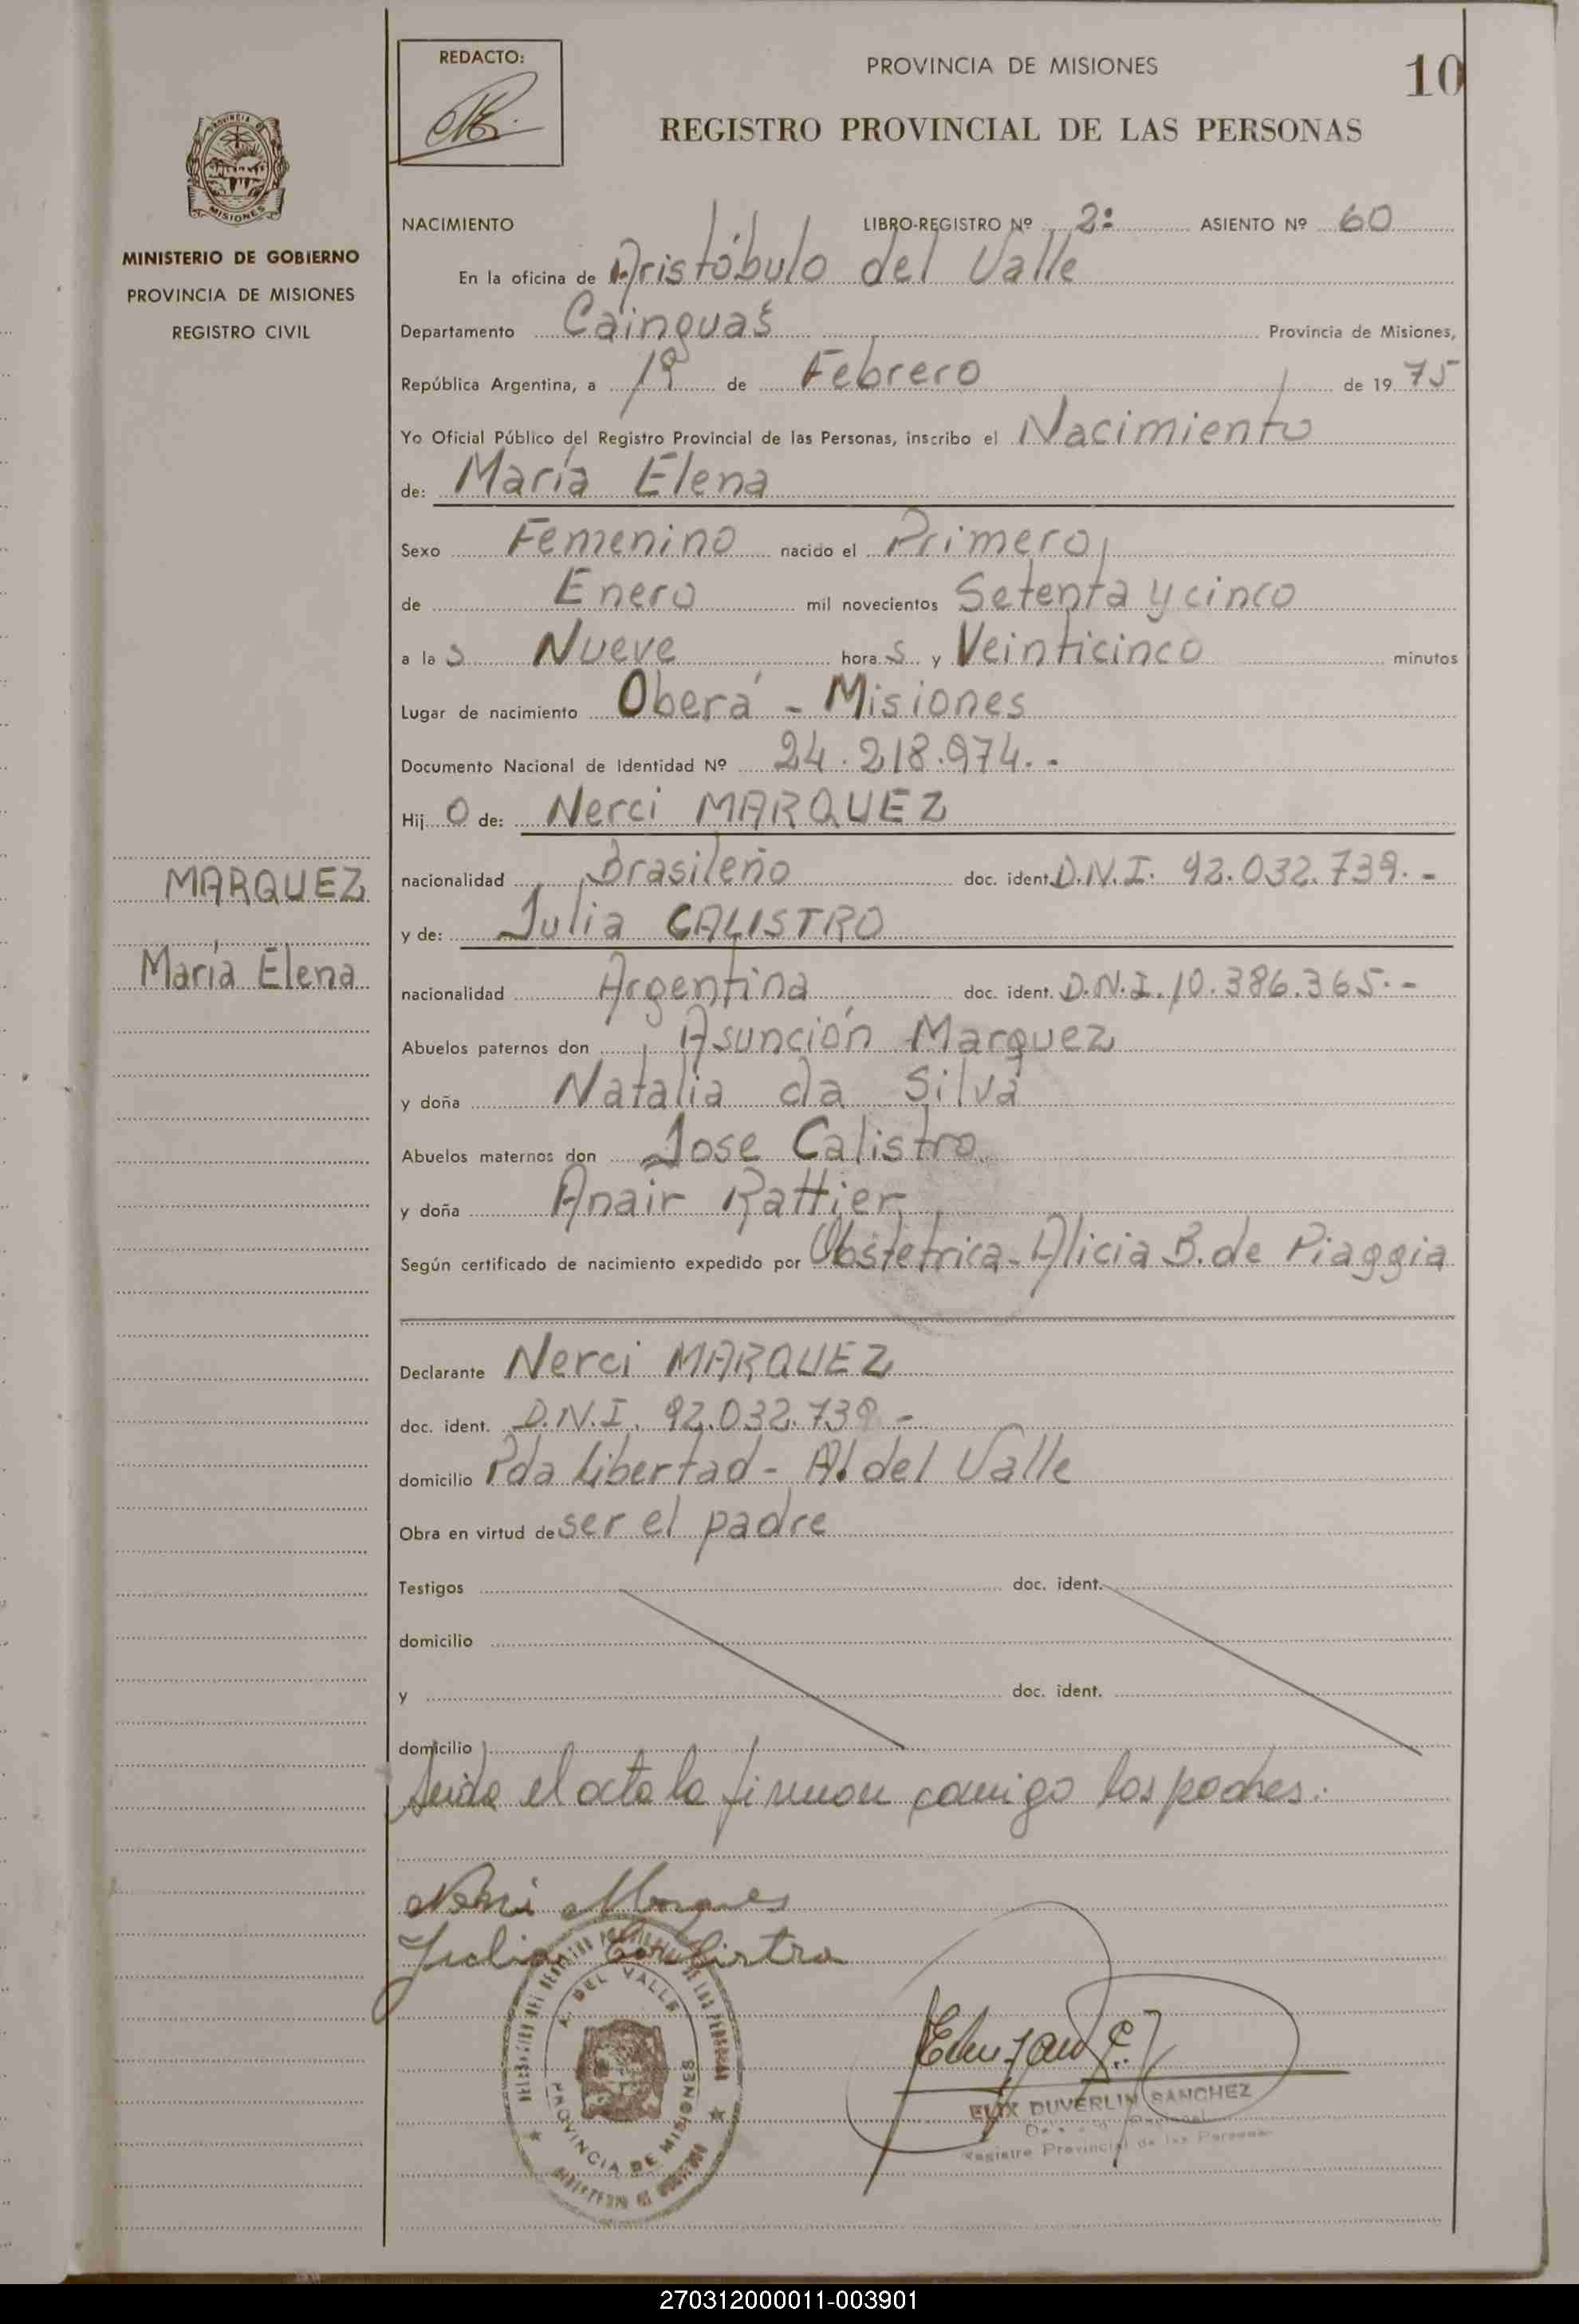 REDACTO:
PROVINCIA DE MISIONES
10
REGISTRO PROVINCIAL DE LAS PERSONAS
MISIONES
MINISTERIO DE GOBIERNO
PROVINCIA DE MISIONES
REGISTRO CIVIL
NACIMIENTO LIBRO-REGISTRO Nº 2º ASIENTO Nº 60
En la oficina de Aristóbulo del Valle
Departamento Cainguás Provincia de Misiones,
República Argentina, a 1º de Febrero de 19 75
Yo Oficial Público del Registro Provincial de las Personas, inscribo el Nacimiento
de: María Elena
Sexo Femenino nacido el Primero
de Enero mil novecientos Setenta y cinco
a la s Nueve hora s y Veinticinco minutos
Lugar de nacimiento Oberá - Misiones
Documento Nacional de Identidad Nº 24.218.974.-
Hij o de: Nerci MARQUEZ
nacionalidad brasileño doc. ident. D.N.I. 92.032.739.-
y de: Julia CALISTRO
nacionalidad Argentina doc. ident. D.N.I. 10.386.365.-
MARQUEZ
María Elena
Abuelos paternos don Asunción Marquez
y doña Natalia da Silva
Abuelos maternos don Jose Calistro
y doña Anair Rattier
Según certificado de nacimiento expedido por Obstetrica - Alicia B. de Piaggia
Declarante Nerci MARQUEZ
doc. ident. D.N.I. 92.032.739 -
domicilio Pda Libertad - A. del Valle
Obra en virtud de ser el padre
Testigos doc. ident.
domicilio
y doc. ident.
domicilio
Leida el acta la firman conmigo los padres.
Nerci Marques
Julia Calistro
A. DEL VALLE
PROVINCIA DE MISIONES
ELIX DUVERLIN SANCHEZ
Registro Provincial de las Personas
270312000011-003901